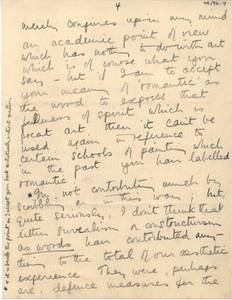 4
merely conjures up in my mind
an academic point of view
which has nothing to do with art
which is of course what you
say — but if I am to accept
your meaning of 'romantic' as
the word to express that
fullness of spirit which is
great art then it can't be
used again in reference to
certain schools of painting which
in the past you have labelled
romantic.
I'm not contributing much by
scribbling on in this way; but
quite seriously, I don't think that
either surrealism or constructivism
as words have contributed any-
thing to the total of our aesthetic
experience. They were, perhaps
are, defence measures for the